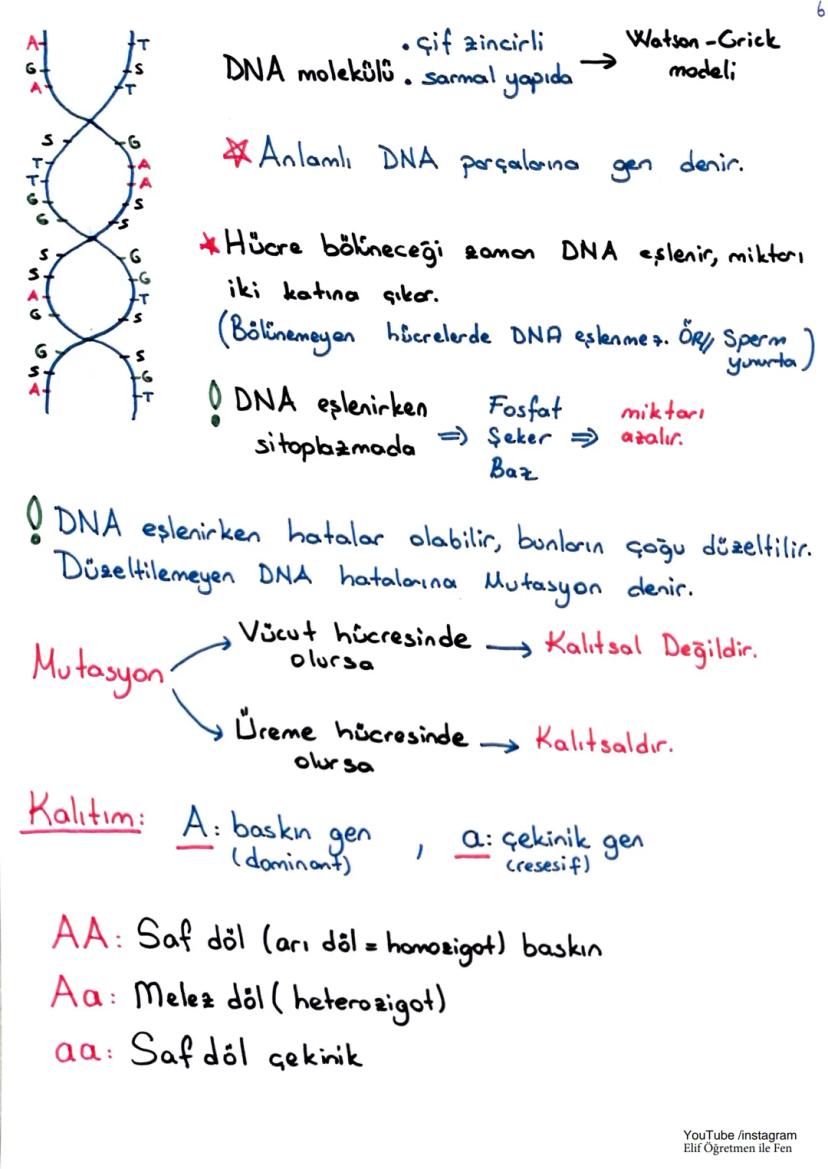 6
A T
G S
A T
S G
T A
T A
G S
G S
S G
S G
A T
G S
G S
S G
A T
DNA molekülü . çif zincirli
. sarmal yapıda → Watson-Crick
modeli
☆ Anlamlı DNA parçalarına gen denir.
★ Hücre bölüneceği zaman DNA eşlenir, miktarı
iki katına çıkar.
(Bölünemeyen hücrelerde DNA eşlenmez. ÖR// Sperm
yumurta)
! DNA eşlenirken
sitoplazmada ⇒ Fosfat
Şeker
Baz ⇒ miktarı
azalır.
! DNA eşlenirken hatalar olabilir, bunların çoğu düzeltilir.
Düzeltilemeyen DNA hatalarına Mutasyon denir.
Mutasyon
Vücut hücresinde
olursa → Kalıtsal Değildir.
Üreme hücresinde
olursa → Kalıtsaldır.
Kalıtım: A: baskın gen
(dominant) , a: çekinik gen
(resesif)
AA: Saf döl (arı döl = homozigot) baskın
Aa: Melez döl (heterozigot)
aa: Saf döl çekinik
YouTube /instagram
Elif Öğretmen ile Fen